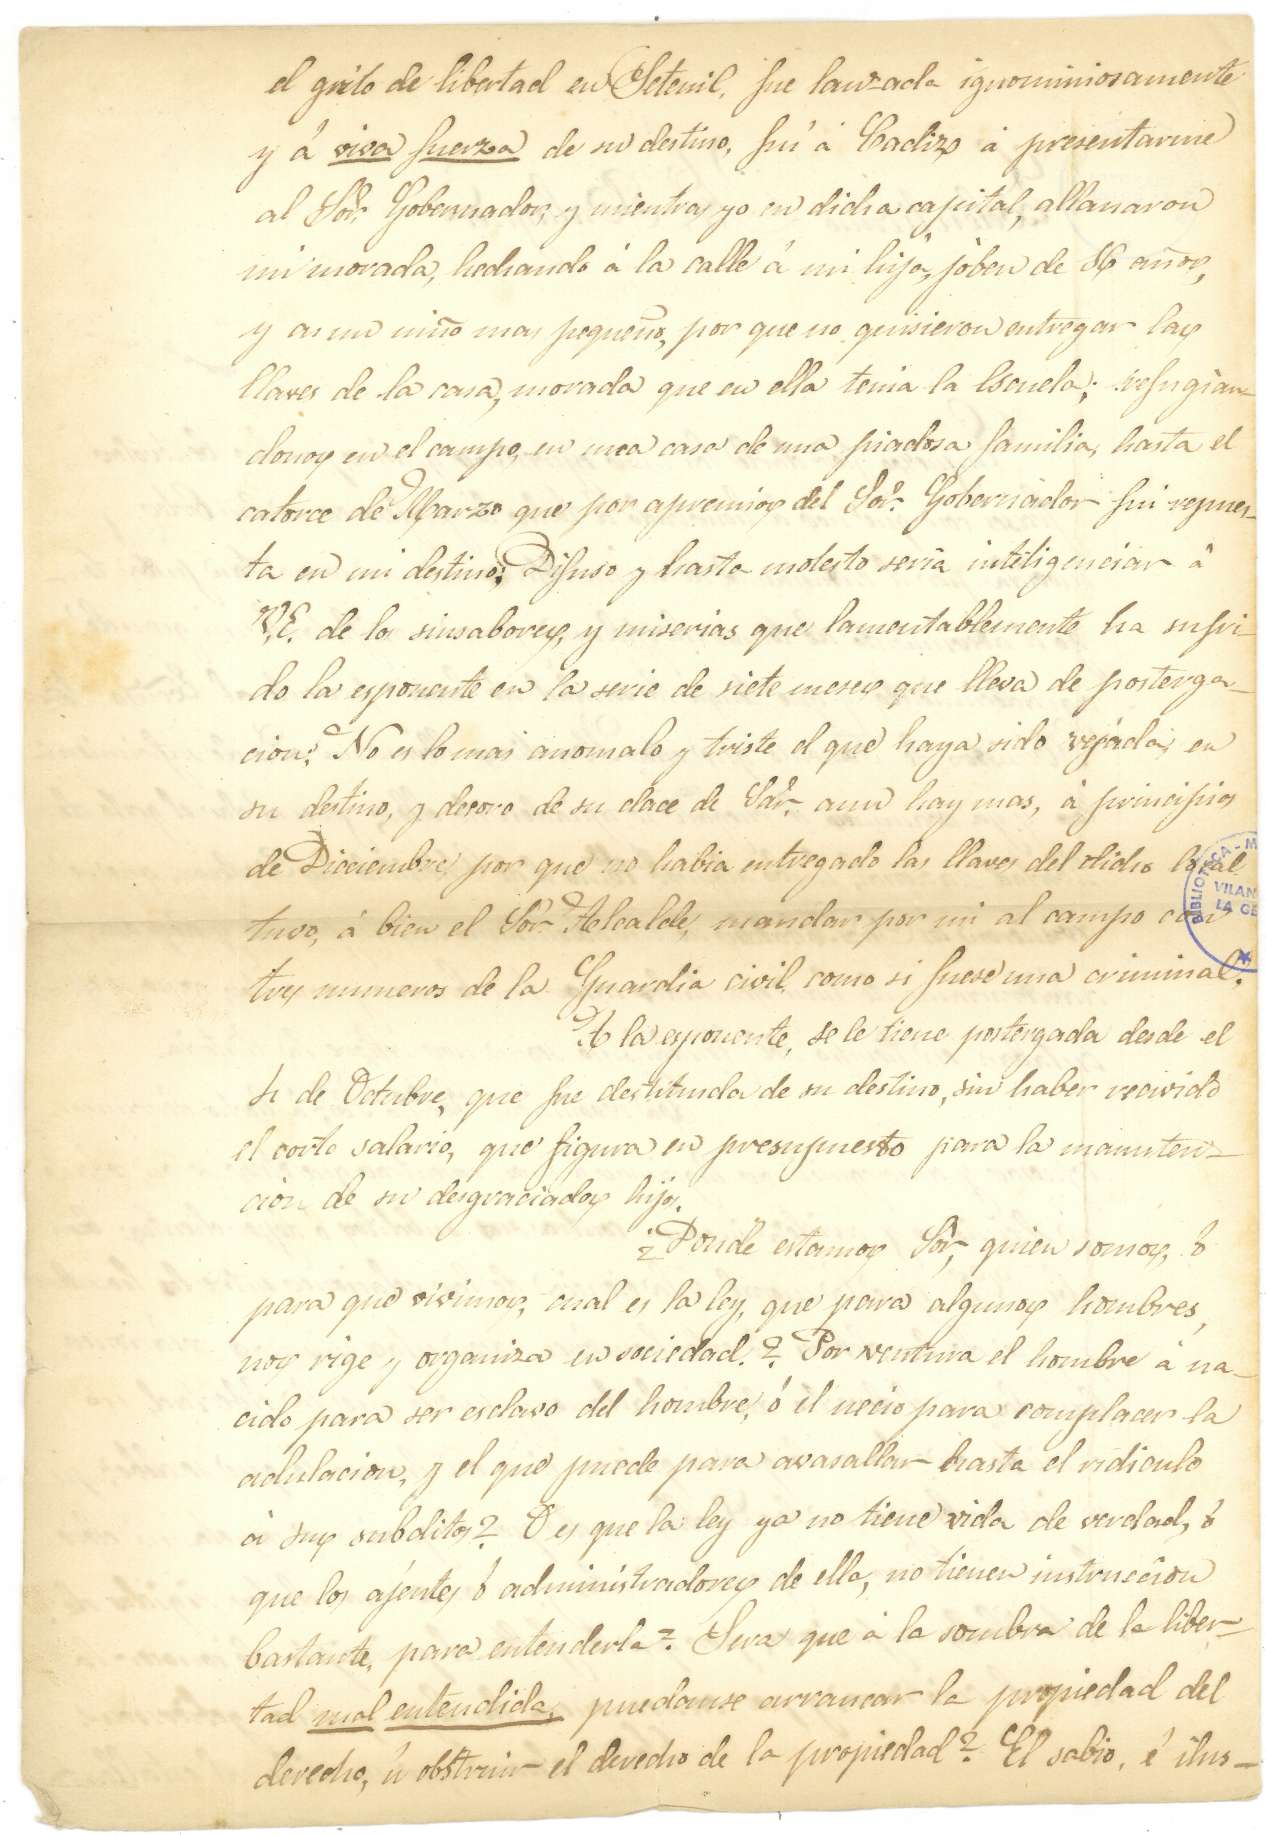 el grito de libertad en Setenil, fue lanzada ignominiosamente
y á viva fuerza de su destino, fuí á Cadiz á presentarme
al Sor. Gobernador, y mientras yo en dicha capital, allanaron
mi morada, hechando á la calle á mi hija, jóben de 16 años,
y a un niño mas pequeño, por que no quisieron entregar las
llaves de la casa, morada que en ella tenia la Escuela; refugian-
donos en el campo, en una casa de una piadosa familia, hasta el
catorce de Marzo que por apremios del Sor. Gobernador fui repues-
ta en mi destino; Difuso y hasta molesto seria inteligenciar á
V.E. de los sinsabores, y miserias que lamentablemente ha sufri-
do la esponente en la serie de siete meses que lleva de posterga-
cion; No es lo mas anomalo y triste el que haya sido vejada, en
su destino, y decoro de su clace de Sra. aun hay mas, á principios
de Dicciembre, por que no habia entregado las llaves del dicho local
tuvo, á bien el Sor. Alcalde, mandar por mi al campo con
tres numeros de la Guardia civil, como si fuese una criminal.
A la esponente, se le tiene postergada desde el
4 de Octubre, que fue destituida de su destino, sin haber recivido
el corto salario, que figura en presupuesto para la manuten-
cion de su desgraciados hijos.
¿Donde estamos Sor, quien somos, ó
para que vivimos, cual es la ley, que para algunos hombres,
nos rige y organiza en sociedad.? Por ventura el hombre á na-
cido para ser esclavo del hombre, ó el necio para complacer la
adulacion, y el que puede para avasallar hasta el ridiculo
á sus subditos? O es que la ley ya no tiene vida de verdad, ó
que los ajentes ó administradores de ella, no tienen instruccion
bastante, para entenderla?. Sera que á la sombra de la liber-
tad mal entendida, puedanse arrancar la propiedad del
derecho, ú obstruir el derecho de la propiedad? El sabio, é ilus-
BIBLIOTECA - M
VILAN
LA GE